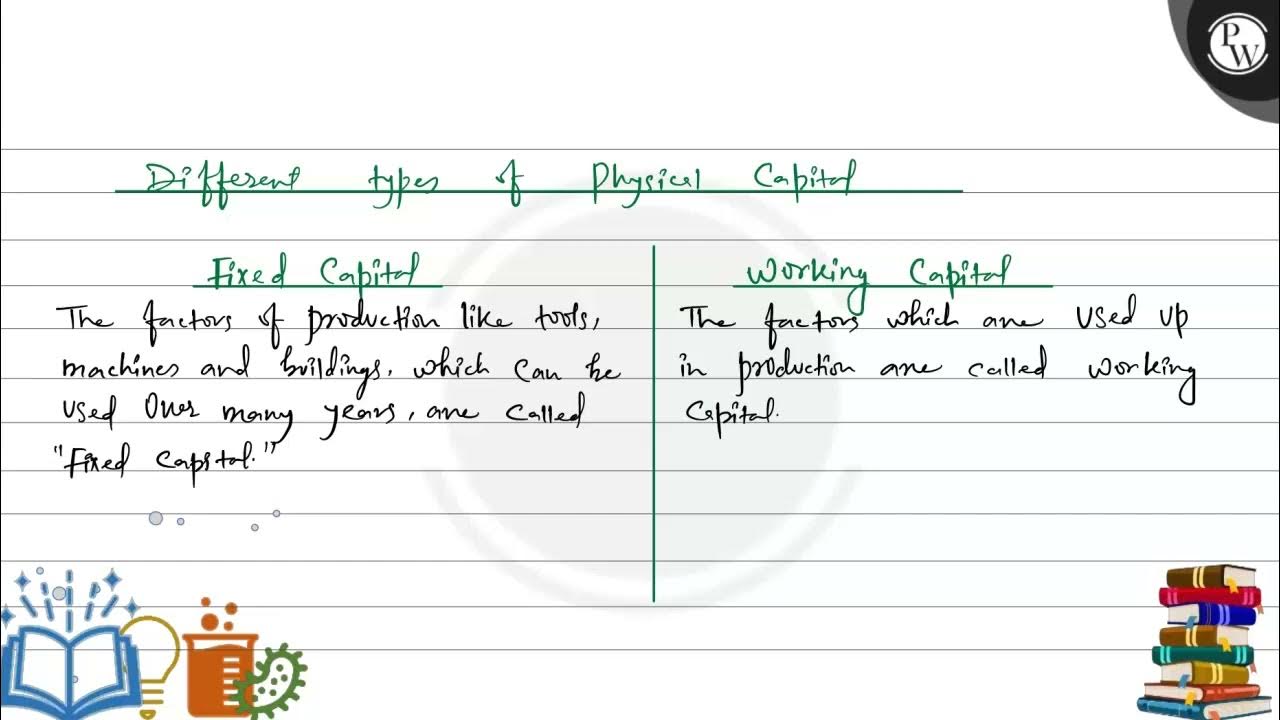 PW
Different types of Physical Capital
Fixed Capital
The factors of production like tools,
machines and buildings, which can be
used over many years, are called
"Fixed Capital."
Working Capital
The factors which are used up
in production are called working
capital.